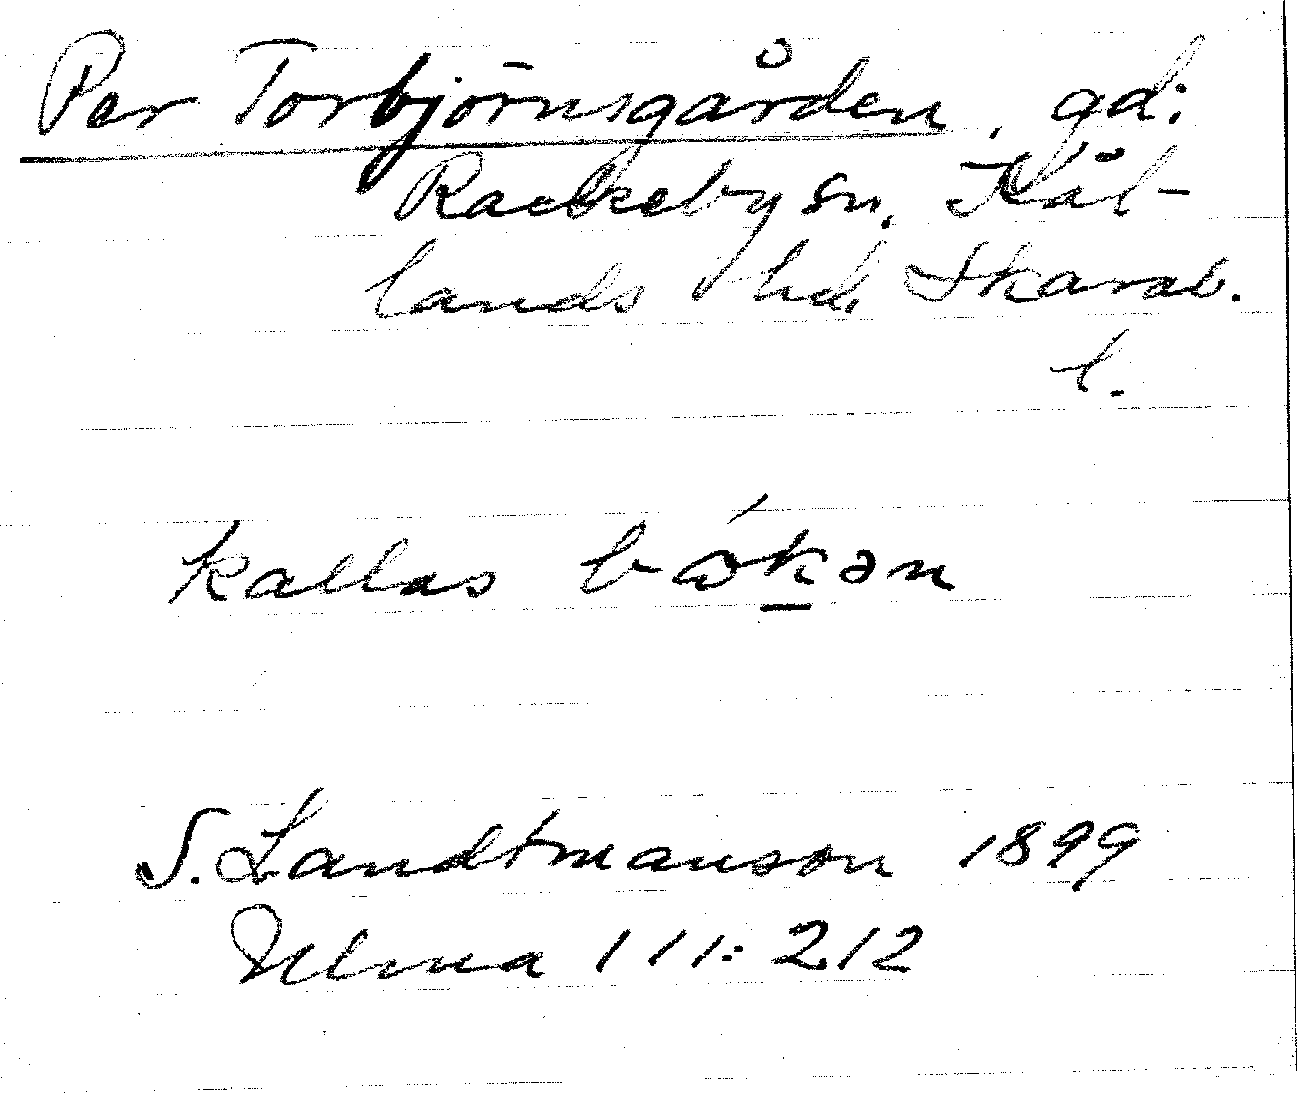 Per Torbjörnsgården, gd:
Rackeby sn. Kål-
lands hd. Skarab.
l.
kallas bǿkən
S. Landtmanson 1899
Ulma 111:212